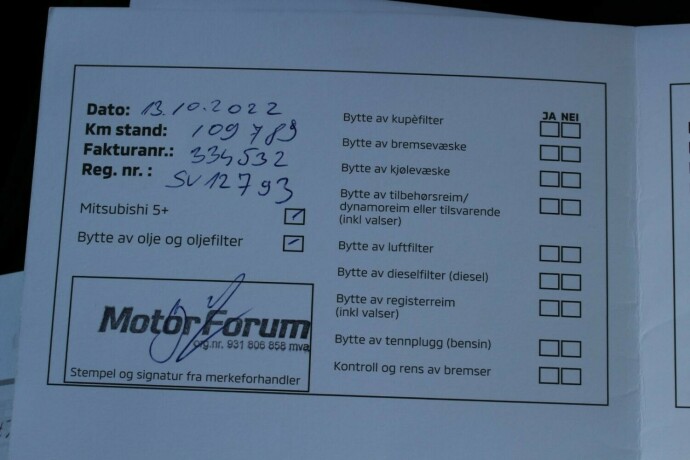 Dato: 13.10.2022
Km stand: 109 789
Fakturanr.: 334532
Reg. nr. : SV12793
Mitsubishi 5+
Bytte av olje og oljefilter
MotorForum
Org.nr. 931 806 858 mva
Stempel og signatur fra merkeforhandler
JA NEI
Bytte av kupèfilter
Bytte av bremsevæske
Bytte av kjølevæske
Bytte av tilbehørsreim/
dynamoreim eller tilsvarende
(inkl valser)
Bytte av luftfilter
Bytte av dieselfilter (diesel)
Bytte av registerreim
(inkl valser)
Bytte av tennplugg (bensin)
Kontroll og rens av bremser